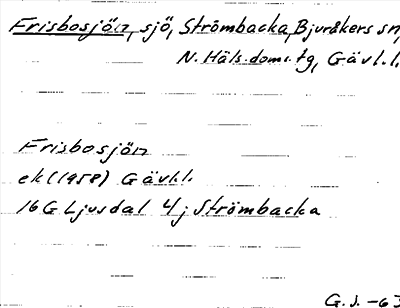 Frisbosjön, sjö, Strömbacka, Bjuråkers sn,
N. Häls. doms. tg, Gävl.l.
Frisbosjön
ek (1958) Gävl.l.
16 G Ljusdal 4j Strömbacka
G.J. -63